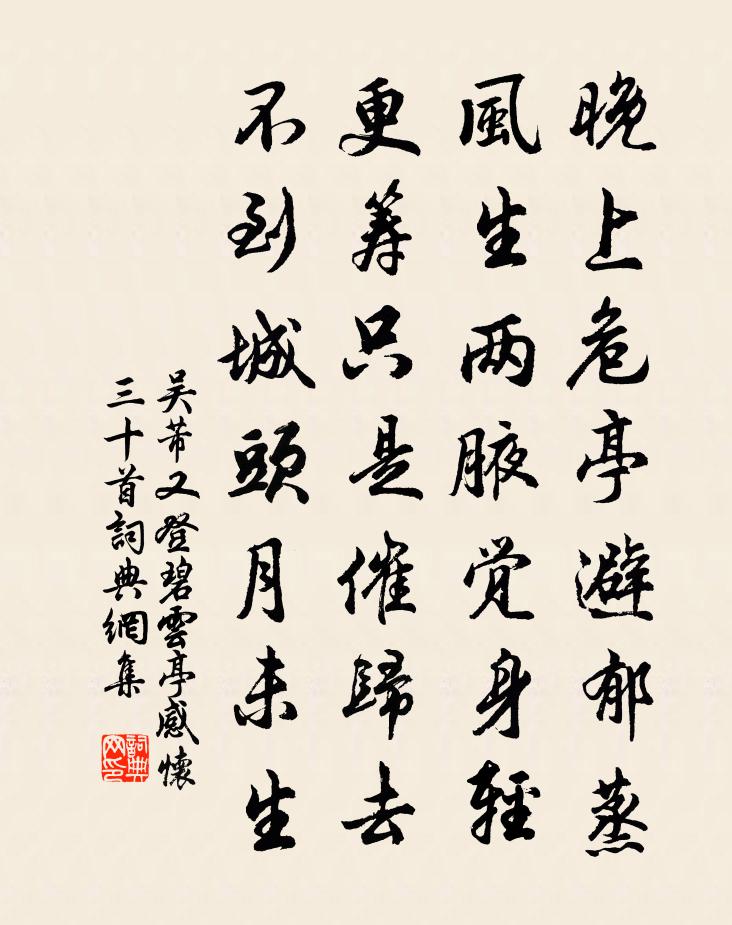 晚上危亭避郁蒸
風生两腋觉身輕
更筹只是催歸去
不到城頭月未生
吴芾又登碧雲亭感懷
三十首詞典網集
詞典
网印